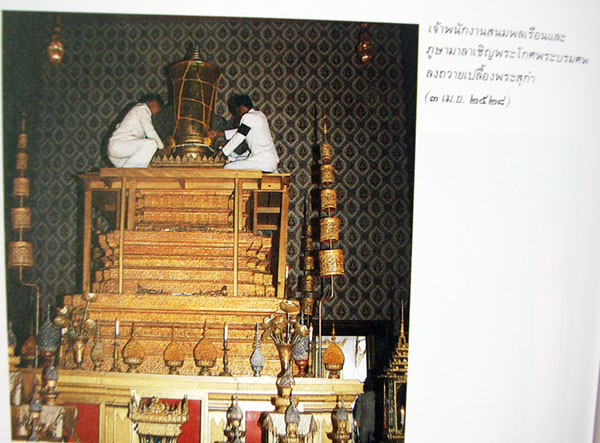 เจ้าพนักงานสนมพลเรือนและ
ภูษามาลาเชิญพระโกศพระบรมศพ
ลงถวายเปลื้องพระสุกำ
(๓ เม.ย. ๒๕๒๘)